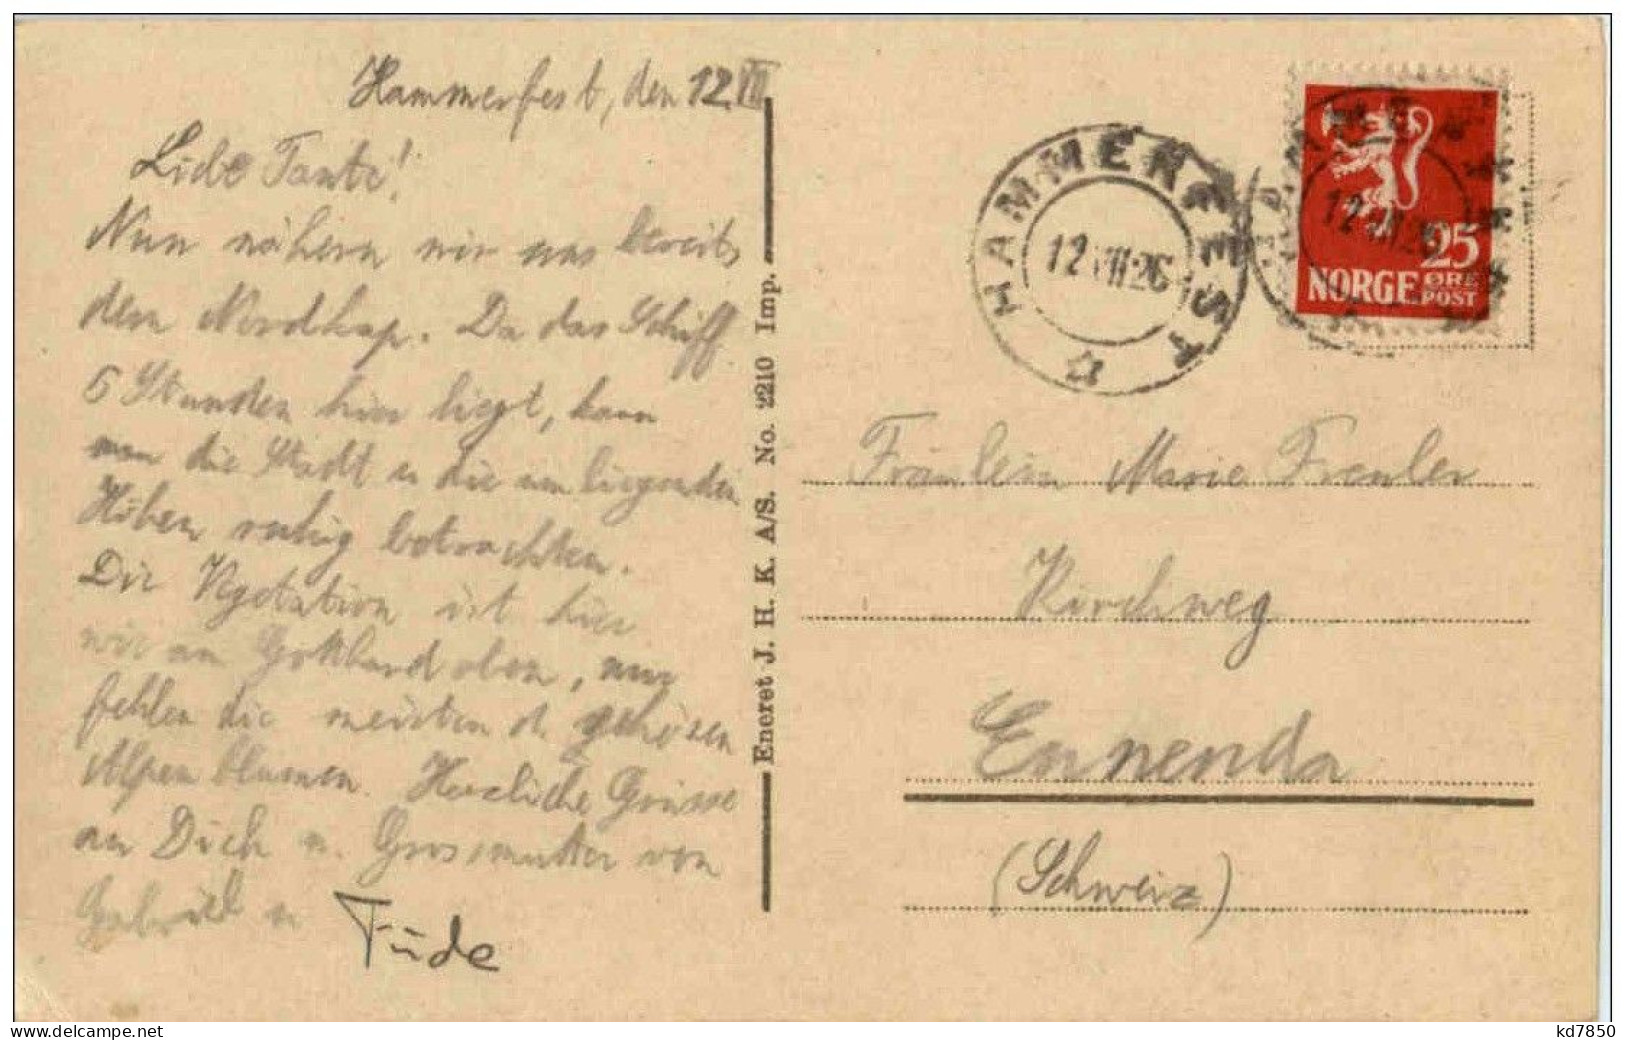 Hammerfest, den 12. VII
Liebe Tante!
Nun nähern wir uns bereits
dem Nordkap. Da das Schiff
5 Stunden hier liegt, kann
man die Stadt u die umliegenden
Höhen ruhig betrachten.
Die Vegetation ist hier
wie am Gotthard oben, nur
fehlen die meisten d. schönen
Alpenblumen. Herzliche Grüsse
an Dich u. Grossmutter von
Gabriel u
Eneret J. H. K. A/S. No. 2210 Imp.
HAMMERFEST
12 VII 26
NORGE
25
ØRE
POST
12 VII 26
Fräulein Marie Freuler
Kirchweg
Ennenda
(Schweiz)
www.delcampe.net
kd7850